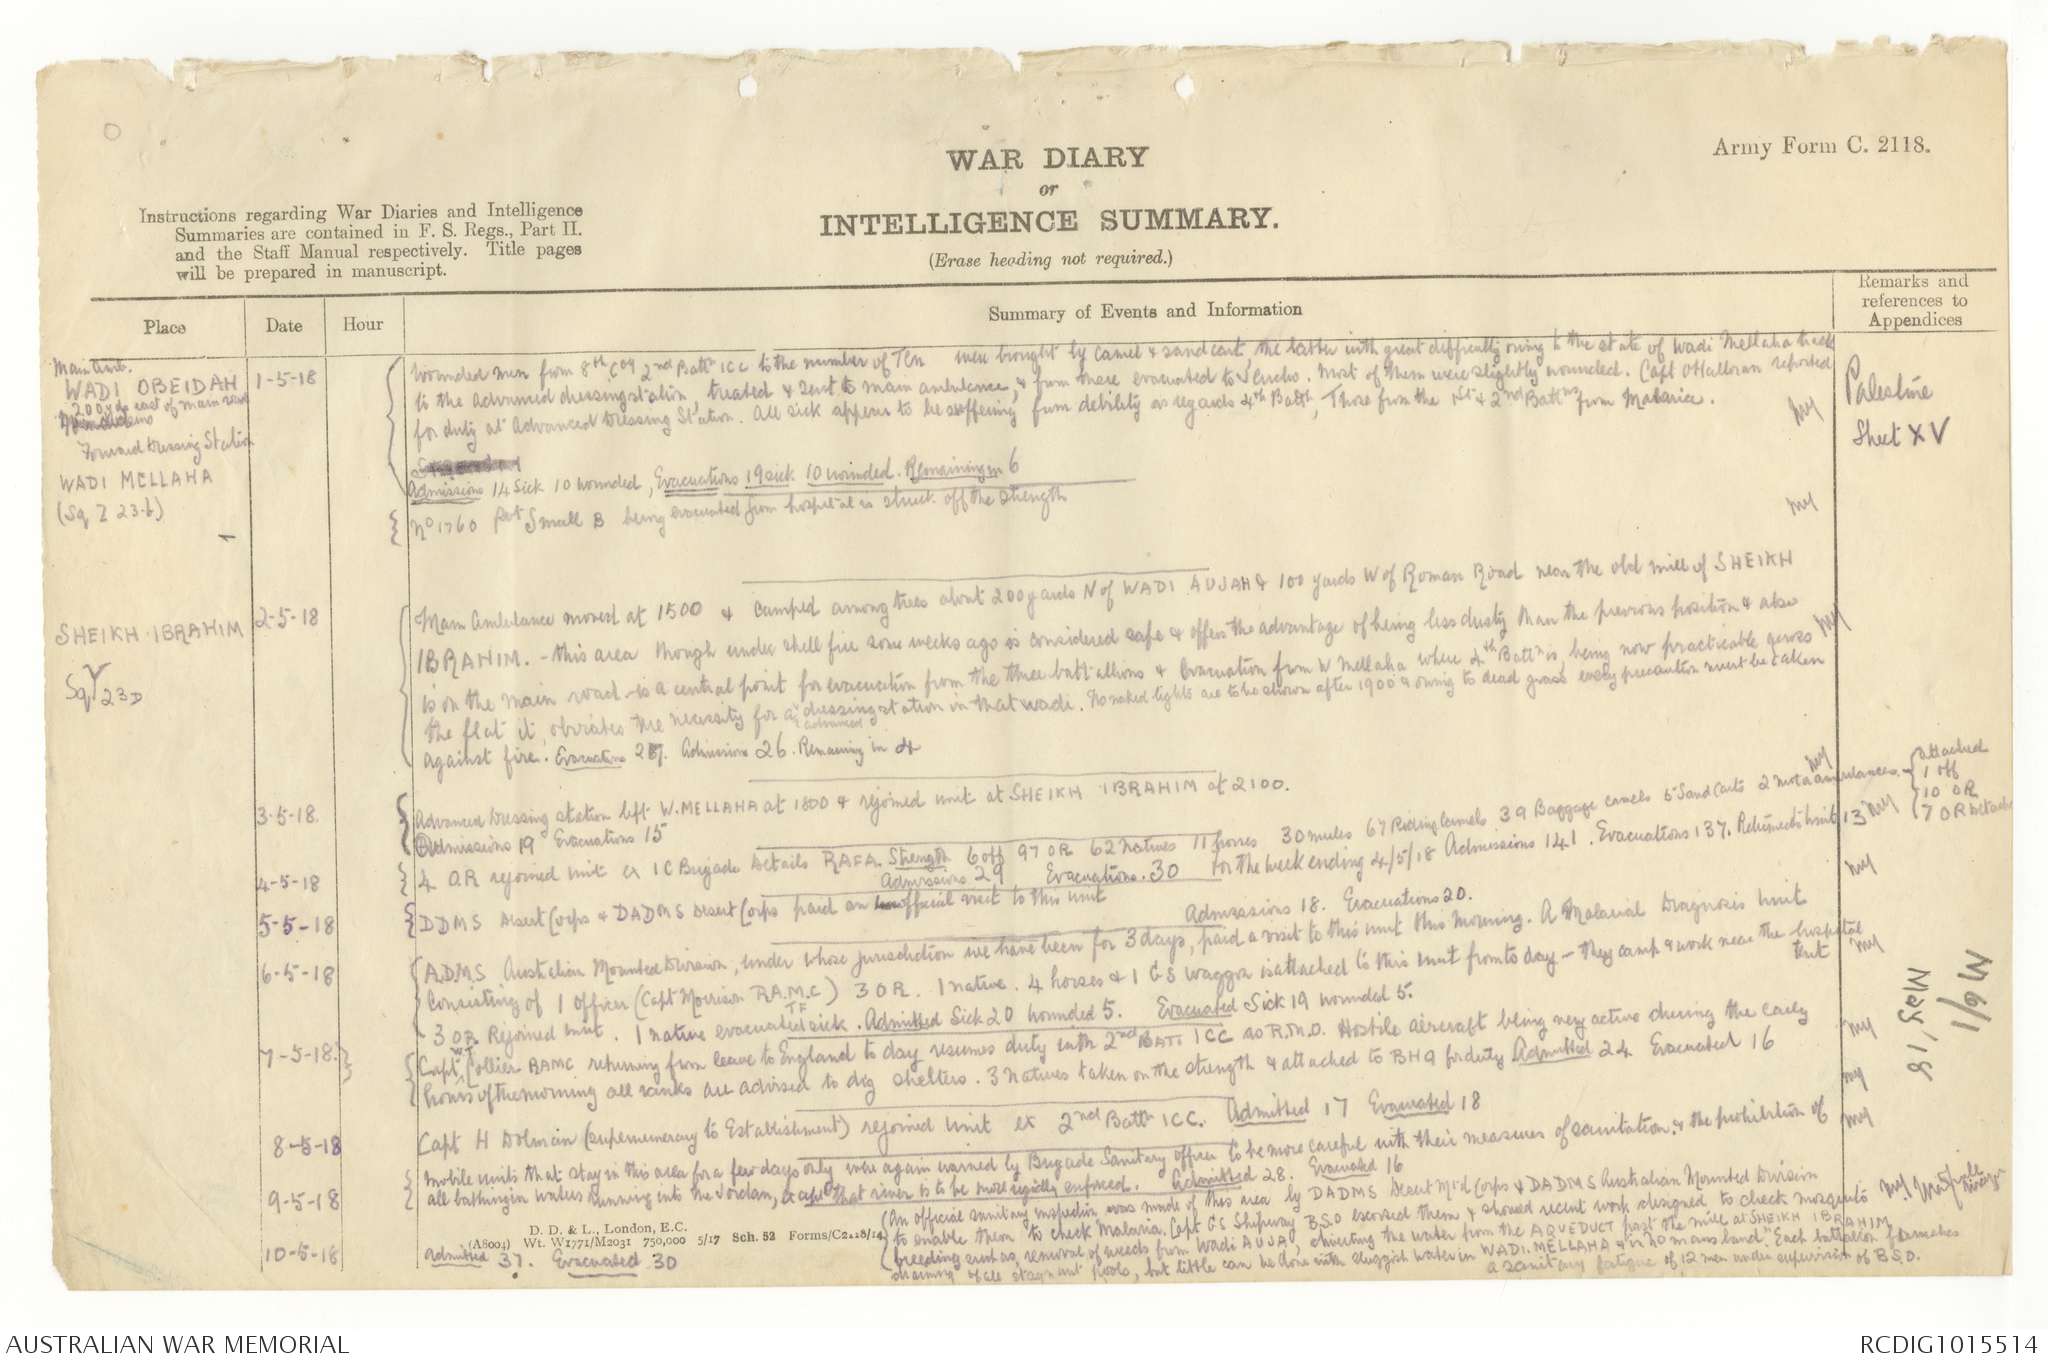 WAR DIARY
or
INTELLIGENCE SUMMARY.
(Erase heading not required.)
Army Form C. 2118.
Instructions regarding War Diaries and Intelligence
Summaries are contained in F. S. Regs., Part II.
and the Staff Manual respectively. Title pages
will be prepared in manuscript.
Place
Date
Hour
Summary of Events and Information
Remarks and
references to
Appendices
Main Amb.
WADI OBEIDAH
200 yds east of main road
Forward Dressing Station
WADI MELLAHA
(Sq Z 23.b)
1-5-18
Wounded men from 8th Coy 2nd Battn ICC to the number of Ten were brought by camel & sandcart, the latter with great difficulty owing to the state of Wadi Mellaha track
to the advanced dressing station, treated & sent to main ambulance, & from there evacuated to Jericho. Most of them were slightly wounded. Capt O'Halloran reported
for duty at Advanced Dressing Station. All sick appear to be suffering from debility as regards 4th Battn, Those from the 1st & 2nd Battns from Malaria.
Admissions 14 Sick 10 wounded, Evacuations 19 sick 10 wounded. Remaining in 6
No 1760 Pvt Small B being evacuated from hospital is struck off the strength
Palestine
Sheet XV
SHEIKH IBRAHIM
Sq Y 23 D
2-5-18
Main Ambulance moved at 1500 & camped among trees about 200 yards N of WADI AUJAH & 100 yards W of Roman Road near the old mill of SHEIKH
IBRAHIM. - this area though under shell fire some weeks ago is considered safe & offers the advantage of being less dusty than the previous position & also
is on the main road - is a central point for evacuation from the three battallions & evacuation from W Mellaha where 4th Battn is, being now practicable across
the flat it, obviates the necessity for a advanced dressing station in that wadi. No naked lights are to be shown after 1900 & owing to dead grass every precaution must be taken
against fire. Evacuations 27. Admissions 26. Remaining in 4
3-5-18.
Advanced Dressing station left W. MELLAHA at 1800 & rejoined unit at SHEIKH IBRAHIM at 2100.
Admissions 19 Evacuations 15
4-5-18
4 OR rejoined unit ex IC Brigade Details RAFA. Strength 6 off 97 OR 62 natives 11 horses 30 mules 67 Riding Camels 39 Baggage camels 5 Sand Carts 2 motor ambulances. - attached
1 off
10 OR
7 OR detached
Admissions 29 Evacuations. 30 for the week ending 4/5/18 Admissions 141. Evacuations 137. Returned to Unit 13
5-5-18
DDMS Desert Corps & DADMS Desert Corps paid an official visit to this unit Admissions 18. Evacuations 20.
6-5-18
A.D.M.S Australian Mounted Division, under whose jurisdiction we have been for 3 days, paid a visit to this unit this morning. A Malarial Diagnosis Unit
consisting of 1 Officer (Capt Morrison R.A.M.C) TF 3 OR. 1 native. 4 horses & 1 GS waggon is attached to this unit from to day - they camp & work near the hospital tent
3 OR Rejoined unit. 1 native evacuated sick. Admitted Sick 20 wounded 5. Evacuated Sick 19 wounded 5.
7-5-18.
Capt W T Collier RAMC returning from leave to England to day resumes duty with 2nd Batt ICC as R.M.O. Hostile aircraft being very active during the early
hours of the morning all ranks are advised to dig shelters. 3 natives taken on the strength & attached to BHQ for duty Admitted 24 Evacuated 16
8-5-18
Capt H Dolman (supernumerary to Establishment) rejoined unit ex 2nd Battn ICC. Admitted 17 Evacuated 18
9-5-18
Mobile units that stay in this area for a few days only were again warned by Brigade Sanitary officer to be more careful with their measures of sanitation. & the prohibition of
all bathing in wadis running into the Jordan, & that river is to be more rigidly enforced. Admitted 28. Evacuated 16
10-5-18
Admitted 37. Evacuated 30
An official sanitary inspection was made of this area by DADMS Desert Mtd Corps & DADMS Australian Mounted Division
to enable them to check Malaria. Capt GS Shipway B.S.O escorted them & showed recent work designed to check mosquito
breeding such as, removal of weeds from Wadi AUJA, diverting the water from the AQUEDUCT past the mill at SHEIKH IBRAHIM
draining of all stagnant pools, but little can be done with sluggish water in WADI. MELLAHA & in "no mans land" Each battalion furnishes
a sanitary fatigue of 12 men under supervision of B.S.O.
M6/1
May, 18
D. D. & L., London, E.C.
(A8004) Wt. W1771/M2031 750,000 5/17 Sch. 52 Forms/C2118/14
AUSTRALIAN WAR MEMORIAL
RCDIG1015514